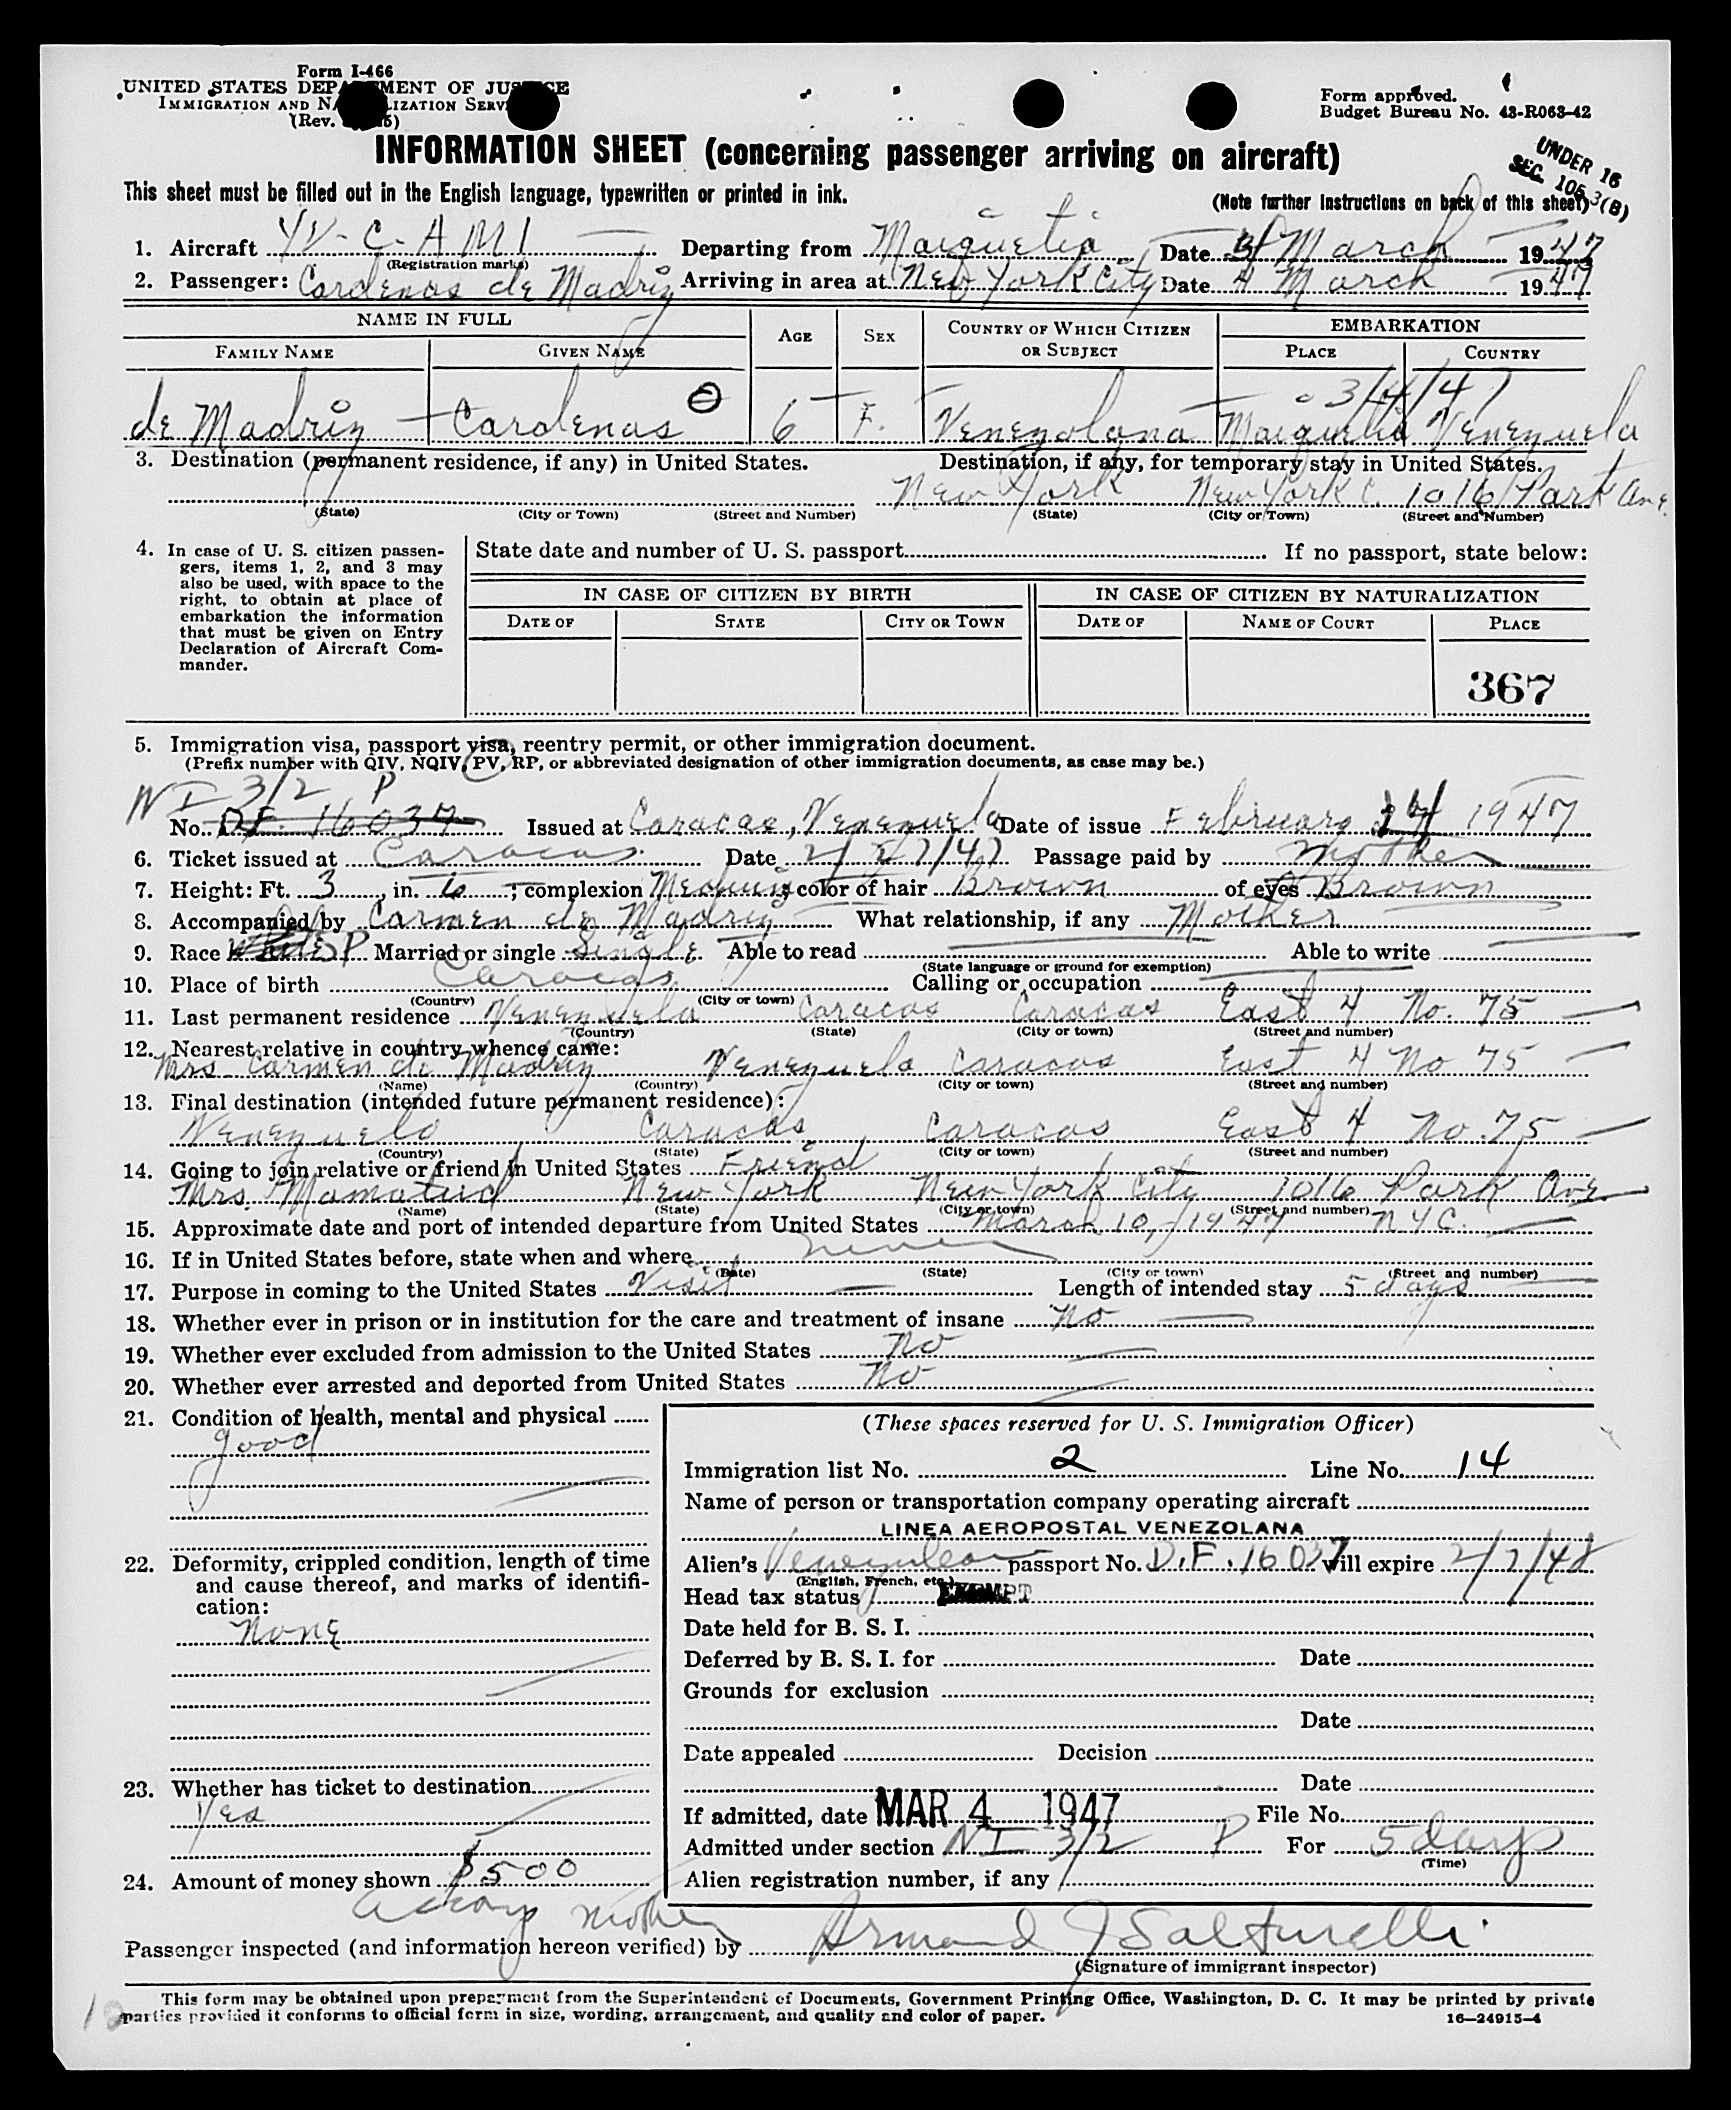 Form I-466
UNITED STATES DEPARTMENT OF JUSTICE
IMMIGRATION AND NATURALIZATION SERVICE
(Rev.
Form approved.
Budget Bureau No. 43-R063-42
INFORMATION SHEET (concerning passenger arriving on aircraft)
UNDER 16
SEC. 105.3(B)
This sheet must be filled out in the English language, typewritten or printed in ink.
(Note further instructions on back of this sheet)
1. Aircraft YV-C-AMI Departing from Maiquetia Date 4 March 1947
(Registration marks)
2. Passenger: Cardenas de Madriz Arriving in area at New York City Date 4 March 1947
NAME IN FULL AGE SEX COUNTRY OF WHICH CITIZEN OR SUBJECT EMBARKATION
FAMILY NAME GIVEN NAME PLACE COUNTRY
3/4/47
de Madriz Cardenas 6 F. Venezolana Maiquetia Venezuela
3. Destination (permanent residence, if any) in United States. Destination, if any, for temporary stay in United States.
New York New York C. 1016 Park Ave.
(State) (City or Town) (Street and Number) (State) (City or Town) (Street and Number)
4. In case of U. S. citizen passengers, items 1, 2, and 3 may also be used, with space to the right, to obtain at place of embarkation the information that must be given on Entry Declaration of Aircraft Commander.
State date and number of U. S. passport If no passport, state below:
IN CASE OF CITIZEN BY BIRTH IN CASE OF CITIZEN BY NATURALIZATION
DATE OF STATE CITY OR TOWN DATE OF NAME OF COURT PLACE
367
5. Immigration visa, passport visa, reentry permit, or other immigration document.
(Prefix number with QIV, NQIV, PV, RP, or abbreviated designation of other immigration documents, as case may be.)
NI 3/2 P
No. D.F. 16037 Issued at Caracas, Venezuela Date of issue February 1947
6. Ticket issued at Caracas Date 2/27/47 Passage paid by Mother
7. Height: Ft. 3, in. 6; complexion Medium; color of hair Brown of eyes Brown
8. Accompanied by Carmen de Madriz What relationship, if any Mother
9. Race White P Married or single Single Able to read Able to write
(State language or ground for exemption)
10. Place of birth Caracas Calling or occupation
(Country) (City or town)
11. Last permanent residence Venezuela Caracas Caracas East 4 No. 75
(Country) (State) (City or town) (Street and number)
12. Nearest relative in country whence came:
Mrs. Carmen de Madriz Venezuela Caracas East 4 No 75
(Name) (Country) (City or town) (Street and number)
13. Final destination (intended future permanent residence):
Venezuela Caracas Caracas East 4 No. 75
(Country) (State) (City or town) (Street and number)
14. Going to join relative or friend in United States Friend
Mrs. New York New York City 1016 Park Ave
(Name) (State) (City or town) (Street and number)
15. Approximate date and port of intended departure from United States March 10, 1947 NYC.
16. If in United States before, state when and where never
(Date) (State) (City or town) (Street and number)
17. Purpose in coming to the United States Visit Length of intended stay 5 days
18. Whether ever in prison or in institution for the care and treatment of insane No
19. Whether ever excluded from admission to the United States No
20. Whether ever arrested and deported from United States No
21. Condition of health, mental and physical
good
22. Deformity, crippled condition, length of time and cause thereof, and marks of identification:
None
23. Whether has ticket to destination
Yes
24. Amount of money shown $500
mother
(These spaces reserved for U. S. Immigration Officer)
Immigration list No. 2 Line No. 14
Name of person or transportation company operating aircraft
LINEA AEROPOSTAL VENEZOLANA
Alien's Venezuelan passport No. D.F. 16037 will expire 2/7/48
(English, French, etc.)
Head tax status EXEMPT
Date held for B. S. I.
Deferred by B. S. I. for Date
Grounds for exclusion
Date
Date appealed Decision
Date
If admitted, date MAR 4 1947 File No.
Admitted under section NI 3/2 P For 5 days
(Time)
Alien registration number, if any
Passenger inspected (and information hereon verified) by Armand J Salturelli
(Signature of immigrant inspector)
This form may be obtained upon prepayment from the Superintendent of Documents, Government Printing Office, Washington, D. C. It may be printed by private
parties provided it conforms to official form in size, wording, arrangement, and quality and color of paper.
16—24915-4